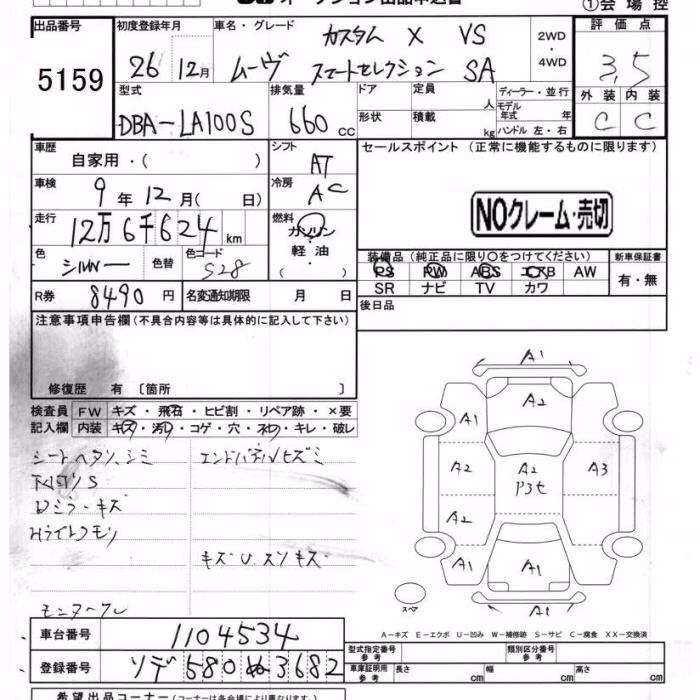 ①会場控
出品番号
5159
初度登録年月
26年 12月
車名・グレード
カスタム X VS
ムーヴ スマートセレクション SA
2WD
・
4WD
評価点
3.5
外装 内装
C C
型式
DBA-LA100S
排気量
660 cc
ドア 定員 人
形状 積載 kg
ディーラー・並行
モデル年式 年
ハンドル 左・右
車歴
自家用・( )
シフト
AT
セールスポイント (正常に機能するものに限ります)
車検
9年12月( 日)
冷房
AC
NOクレーム・売切
走行
12万6千624 km
燃料
ガソリン
軽油
( )
色
シルバー
色替
色コード
S28
装備品 (純正品に限り○をつけてください)
PS PW ABS エアB AW
SR ナビ TV カワ
新車保証書
有・無
R券 8490円
名変通知期限 月 日
後日品
注意事項申告欄(不具合内容等は具体的に記入して下さい)
修復歴 有 [箇所 ]
検査員 FW キズ・飛石・ヒビ割・リペア跡・×要
記入欄 内装 キズ・汚レ・コゲ・穴・ネジ・キレ・破レ
シートヘタリ、シミ
エンドパネルヒズミ
ロミラーキズ
Hライトクモリ
キズ U.スリキズ
A1
A2
A1
A2 A2 A3
P3セ
A2
A1 A1 A1
A1
スペア
A-キズ E-エクボ U-凹み W-補修跡 S-サビ C-腐食 XX-交換済
車台番号 1104534
登録番号 ソデ580ぬ3682
型式指定番号
参考
類別区分番号
参考
車庫証明用
参考
長さ cm 幅 cm 高さ cm
希望出品コーナー(コーナーは各会場により異なります)